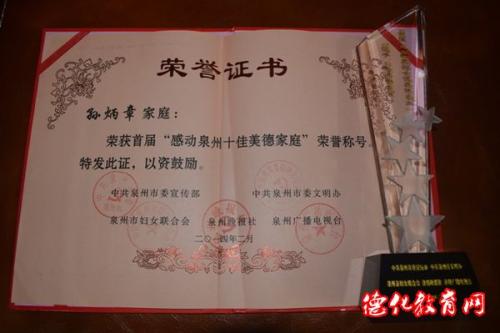 荣誉证书
孙炳章 家庭：
荣获首届“感动泉州十佳美德家庭”荣誉称号。
特发此证，以资鼓励。
中共泉州市委宣传部 中共泉州市委文明办
泉州市妇女联合会 泉州晚报社 泉州广播电视台
二〇一四年二月
德化教育网